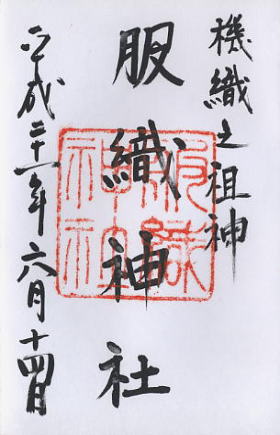 機織之祖神
服織神社
平成二十一年六月十四日
服織神社